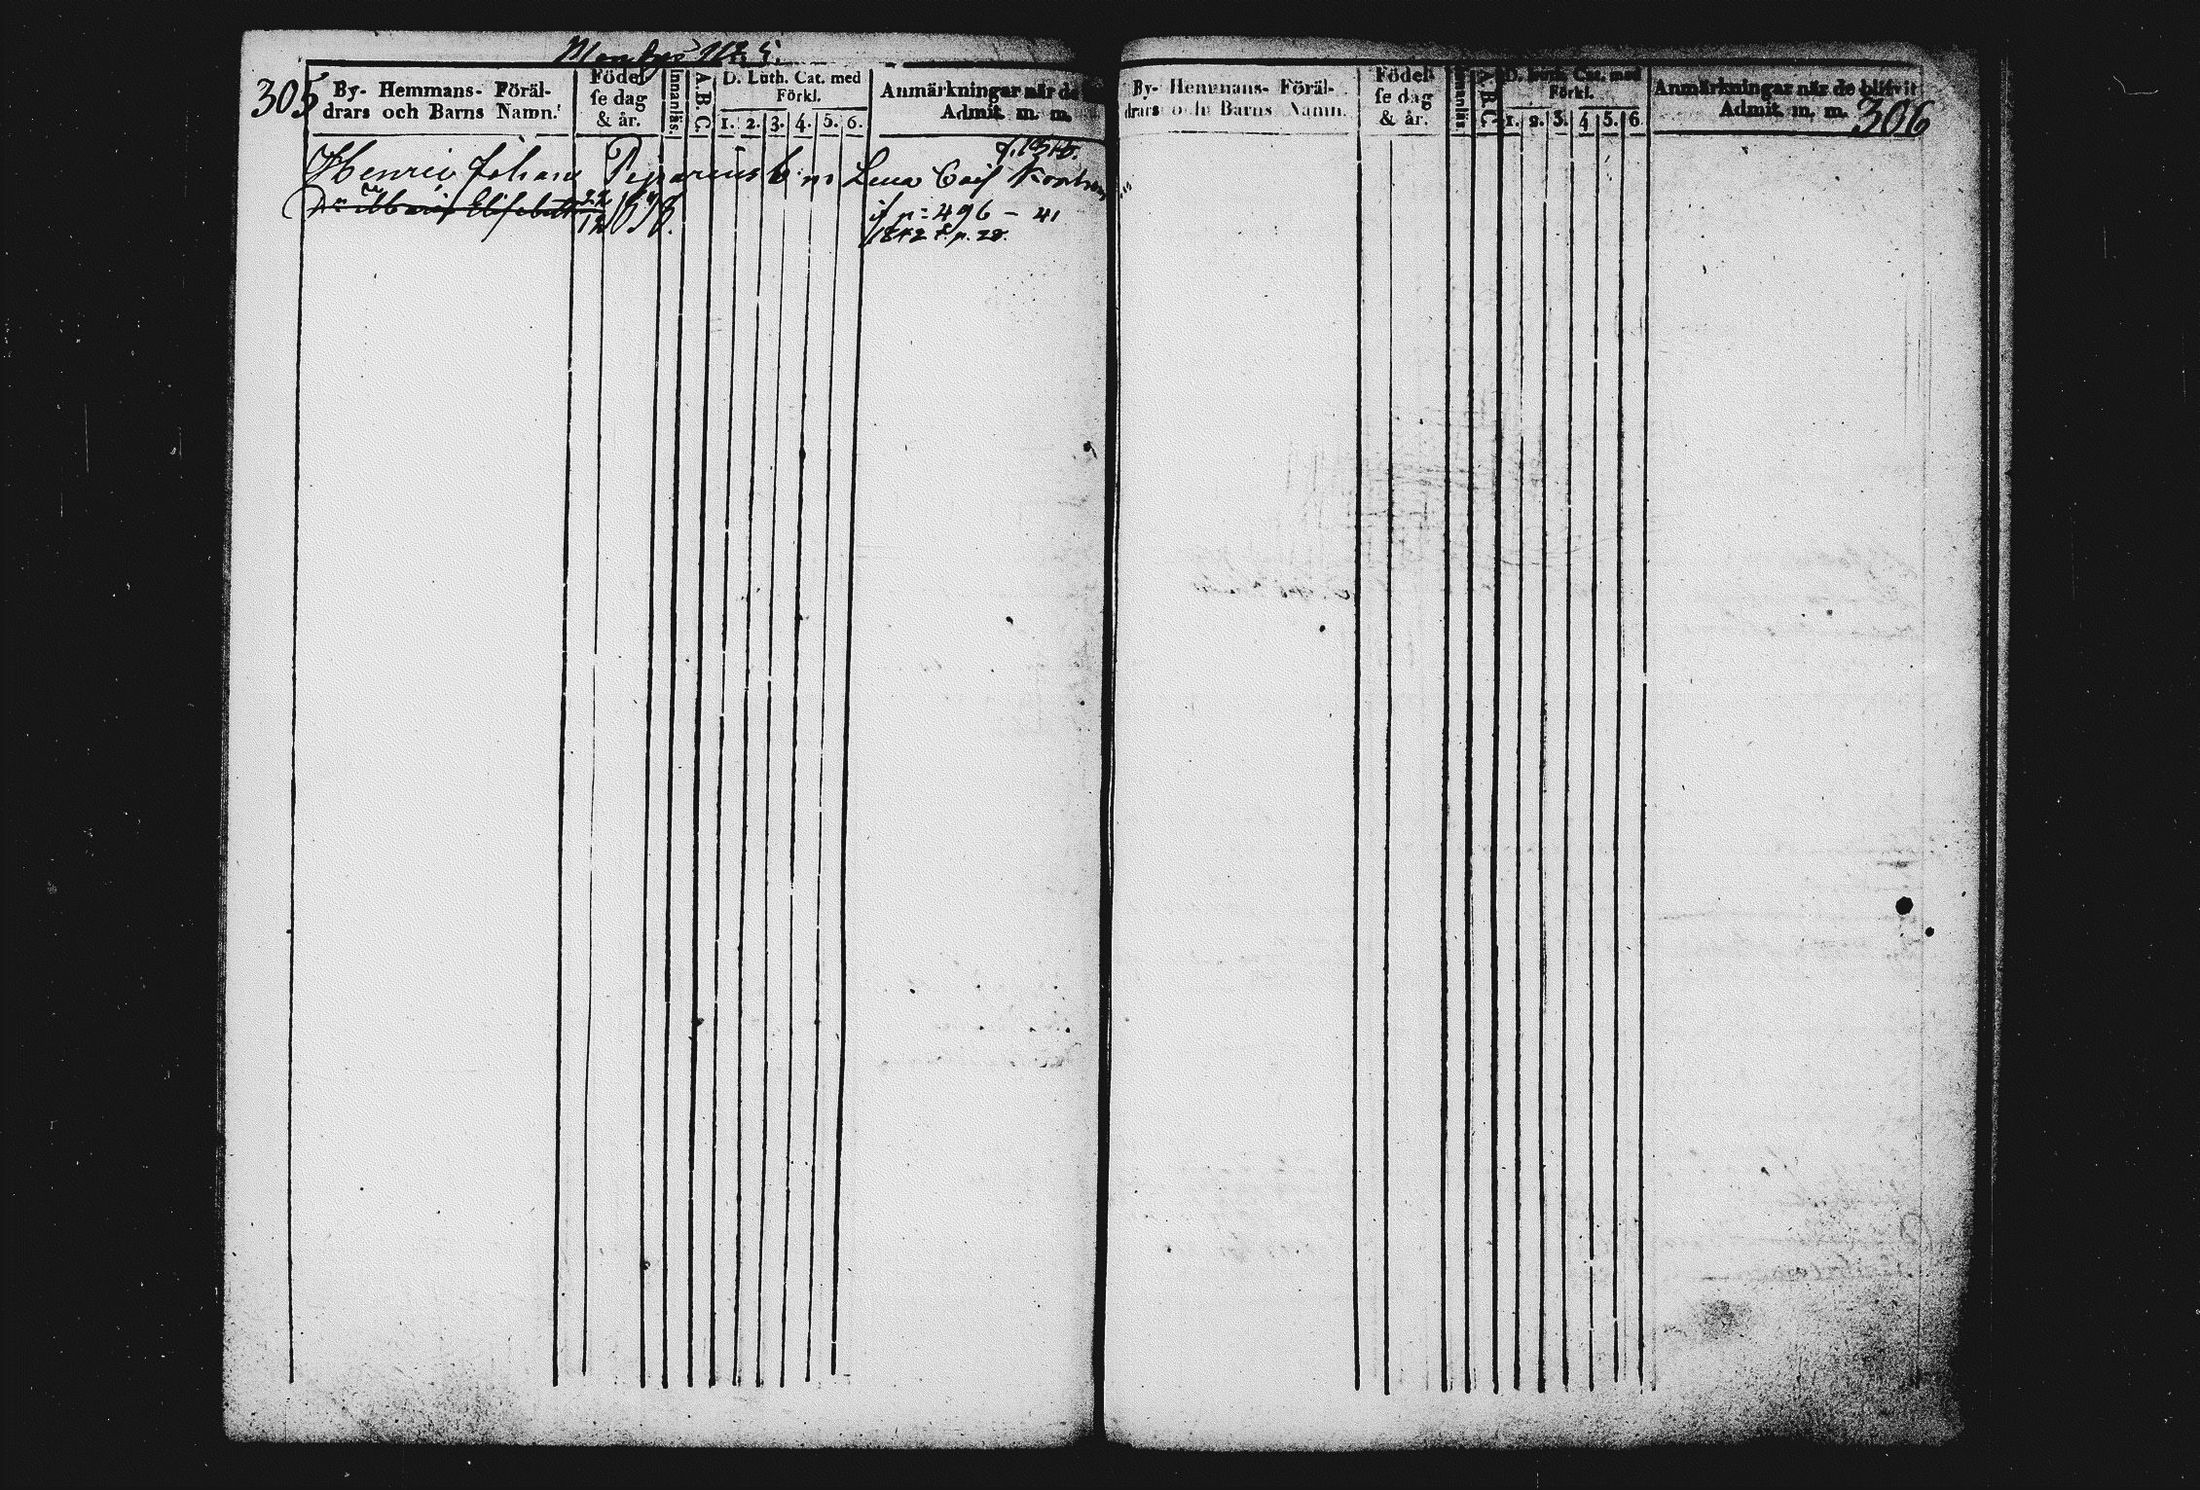 305
By- Hemmans- Föräl-
drars och Barns Namn.
Födel
se dag
& år.
Innanläs.
A.B.C.
D. Luth. Cat. med
Förkl.
1. 2. 3. 4. 5. 6.
Anmärkningar när de
Admit. m. m.
Henric Johan
Lena Cais
Elisabeth 1838.
n: 496 - 41
1842 f. p. 28.
By- Hemmans- Föräl-
drars och Barns Namn.
Födel
se dag
& år.
Innanläs.
A.B.C.
D. Luth. Cat. med
Förkl.
1. 2. 3. 4 5. 6
Anmärkningar när de blifvit
Admit. m. m.
306